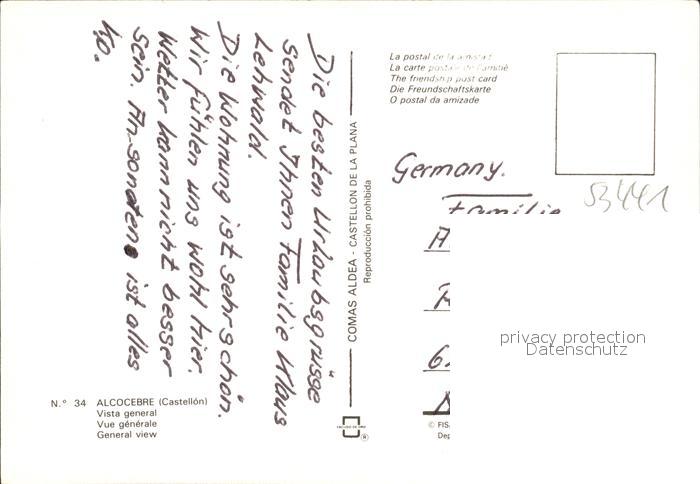 Die besten Urlaubsgrüsse
sendet Ihnen Familie Klaus
Lehwald.
Die Wohnung ist sehr schön.
Wir fühlen uns wohl hier.
Wetter kann nicht besser
sein. Ansonsten ist alles
k.o.
N.° 34 ALCOCEBRE (Castellón)
Vista general
Vue générale
General view
COMAS ALDEA - CASTELLON DE LA PLANA
Reproducción prohibida
La postal de la amistad
La carte postale de l'amitié
The friendship post card
Die Freundschaftskarte
O postal da amizade
Germany.
Familie
A
6.
53441
privacy protection
Datenschutz
® 
© FIS
Dep